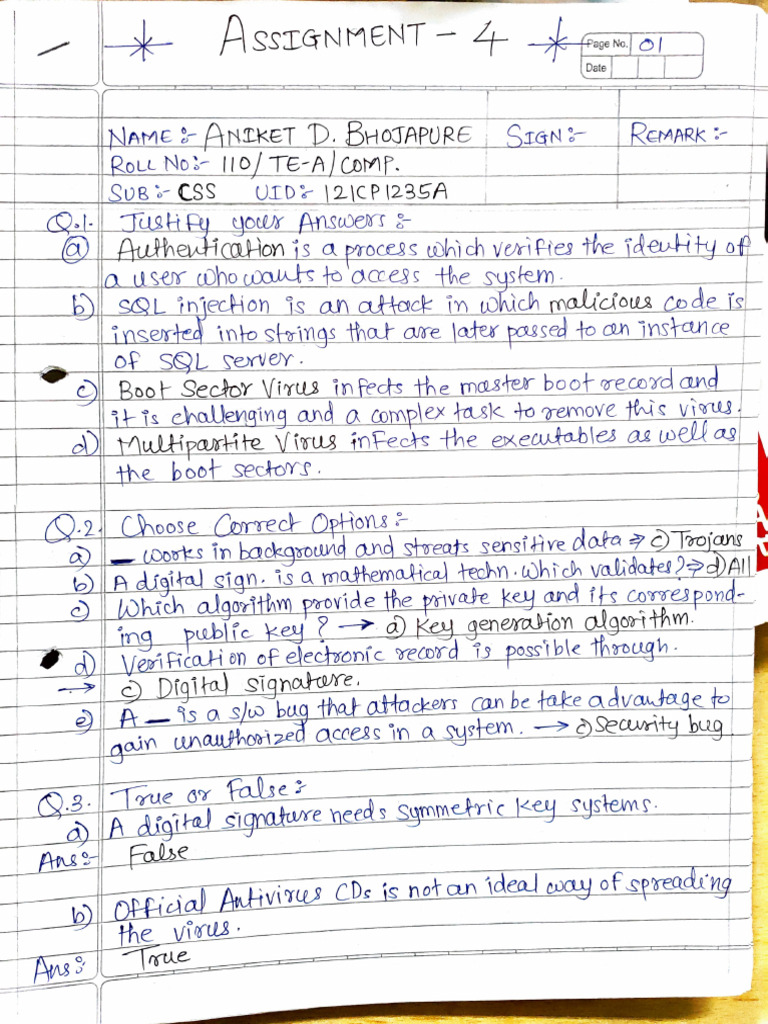 ASSIGNMENT - 4
Page No. 01
Date
NAME :- ANIKET D. BHOJAPURE SIGN :- REMARK :-
ROLL NO :- 110/TE-A/COMP.
SUB :- CSS UID :- 121CP1235A
Q.1. Justify your Answers :-
a) Authentication is a process which verifies the identity of
a user who wants to access the system.
b) SQL injection is an attack in which malicious code is
inserted into strings that are later passed to an instance
of SQL server.
c) Boot Sector Virus infects the master boot record and
it is challenging and a complex task to remove this virus.
d) Multipartite Virus infects the executables as well as
the boot sectors.
Q.2. Choose Correct Options :-
a) _ works in background and streats sensitive data ⇒ c) Trojans
b) A digital sign. is a mathematical techn. which validates? ⇒ d) All
c) Which algorithm provide the private key and its correspond-
ing public key? → a) Key generation algorithm.
d) Verification of electronic record is possible through.
→ c) Digital signature.
e) A _ is a s/w bug that attackers can be take advantage to
gain unauthorized access in a system. → c) Security bug.
Q.3. True or False :-
a) A digital signature needs symmetric key systems.
Ans :- False
b) Official Antivirus CDs is not an ideal way of spreading
the virus.
Ans :- True